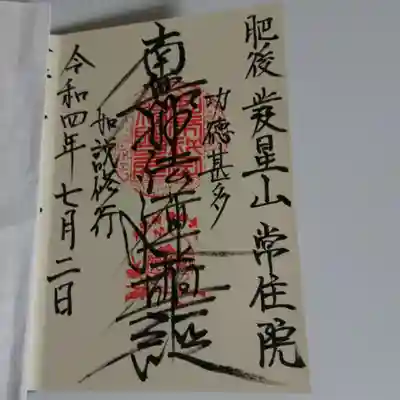 肥後 發星山 常住院
功徳甚多
南無妙法蓮華経
如説修行
令和四年七月二日